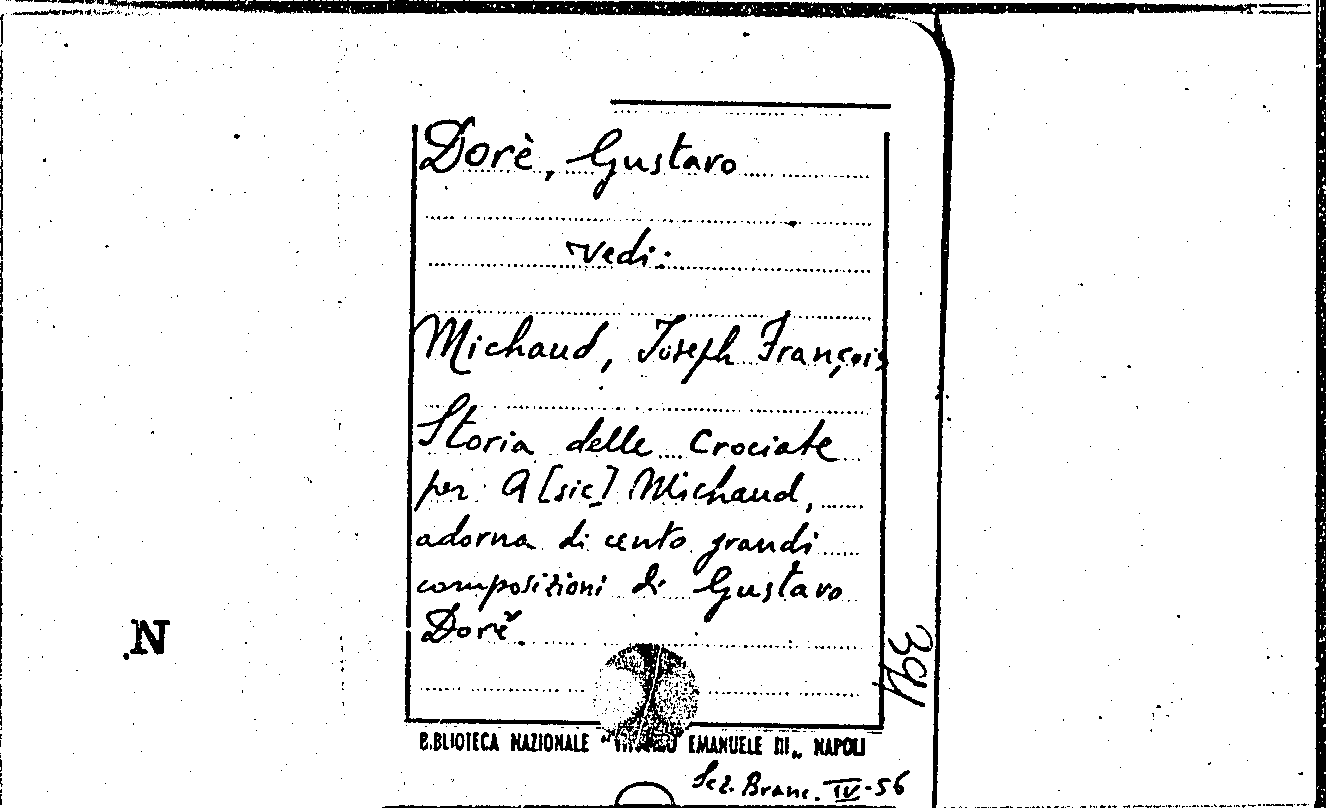 Dorè, Gustavo
vedi:
Michaud, Joseph François
Storia delle Crociate
per A [sic] Michaud,
adorna di cento grandi
composizioni di Gustavo
Dorè
N
394
BIBLIOTECA NAZIONALE "VITTORIO EMANUELE III„ NAPOLI
Sez. Branc. IV-56